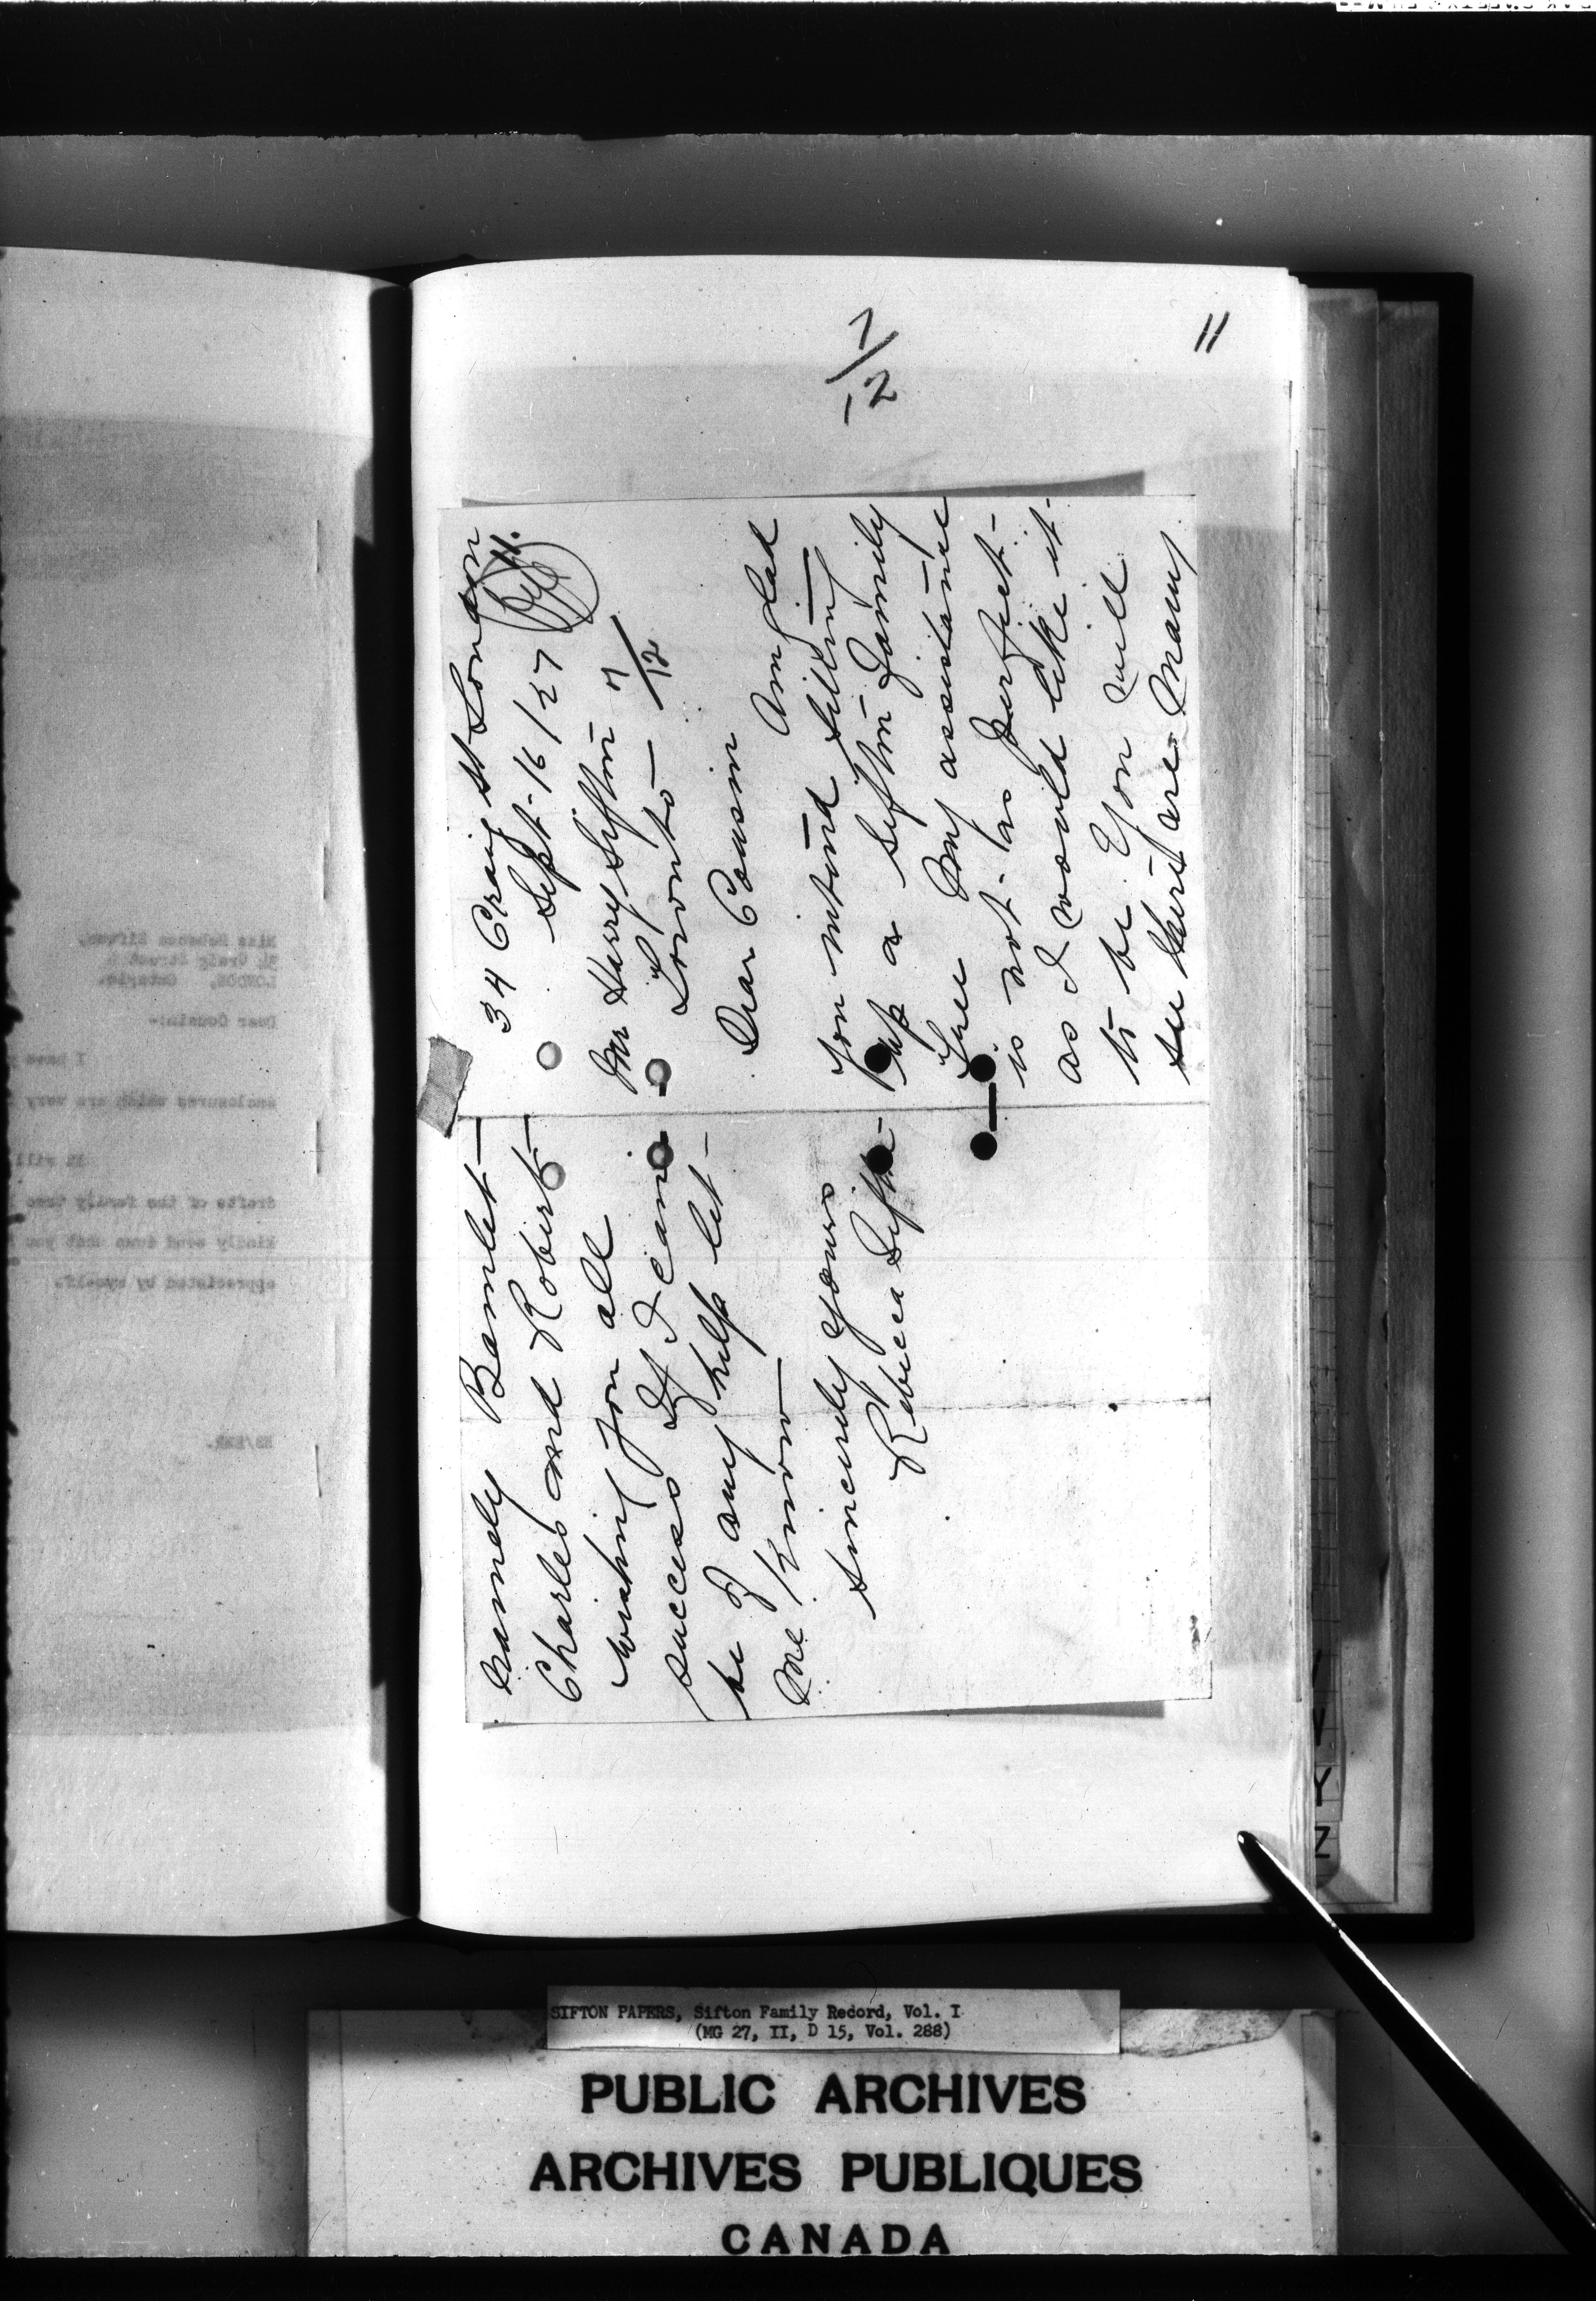 11
7/12
34 Craig St London
Sept-16/27
11.
Mr Harry Sifton 7/12
Toronto—
Dear Cousin
Am glad
you intend getting
up a Sifton Family
Tree My assistance
is not as perfect-
as I would like it-
to be. You will
see there are many
namely Bamlet—
Charles and Robert—
wishing you all
success If I can
be of any help let-
me know—
sincerely yours
Rebecca Sifton-
Miss Rebecca Sifton,
34 Craig Street
LONDON, Ontario.
Dear Cousin:-
I have
enclosures which are very
It will
drafts of the family tree
kindly send down what you
appreciated by myself.
Y
Z
SIFTON PAPERS, Sifton Family Record, Vol. I
(MG 27, II, D 15, Vol. 288)
PUBLIC ARCHIVES
ARCHIVES PUBLIQUES
CANADA